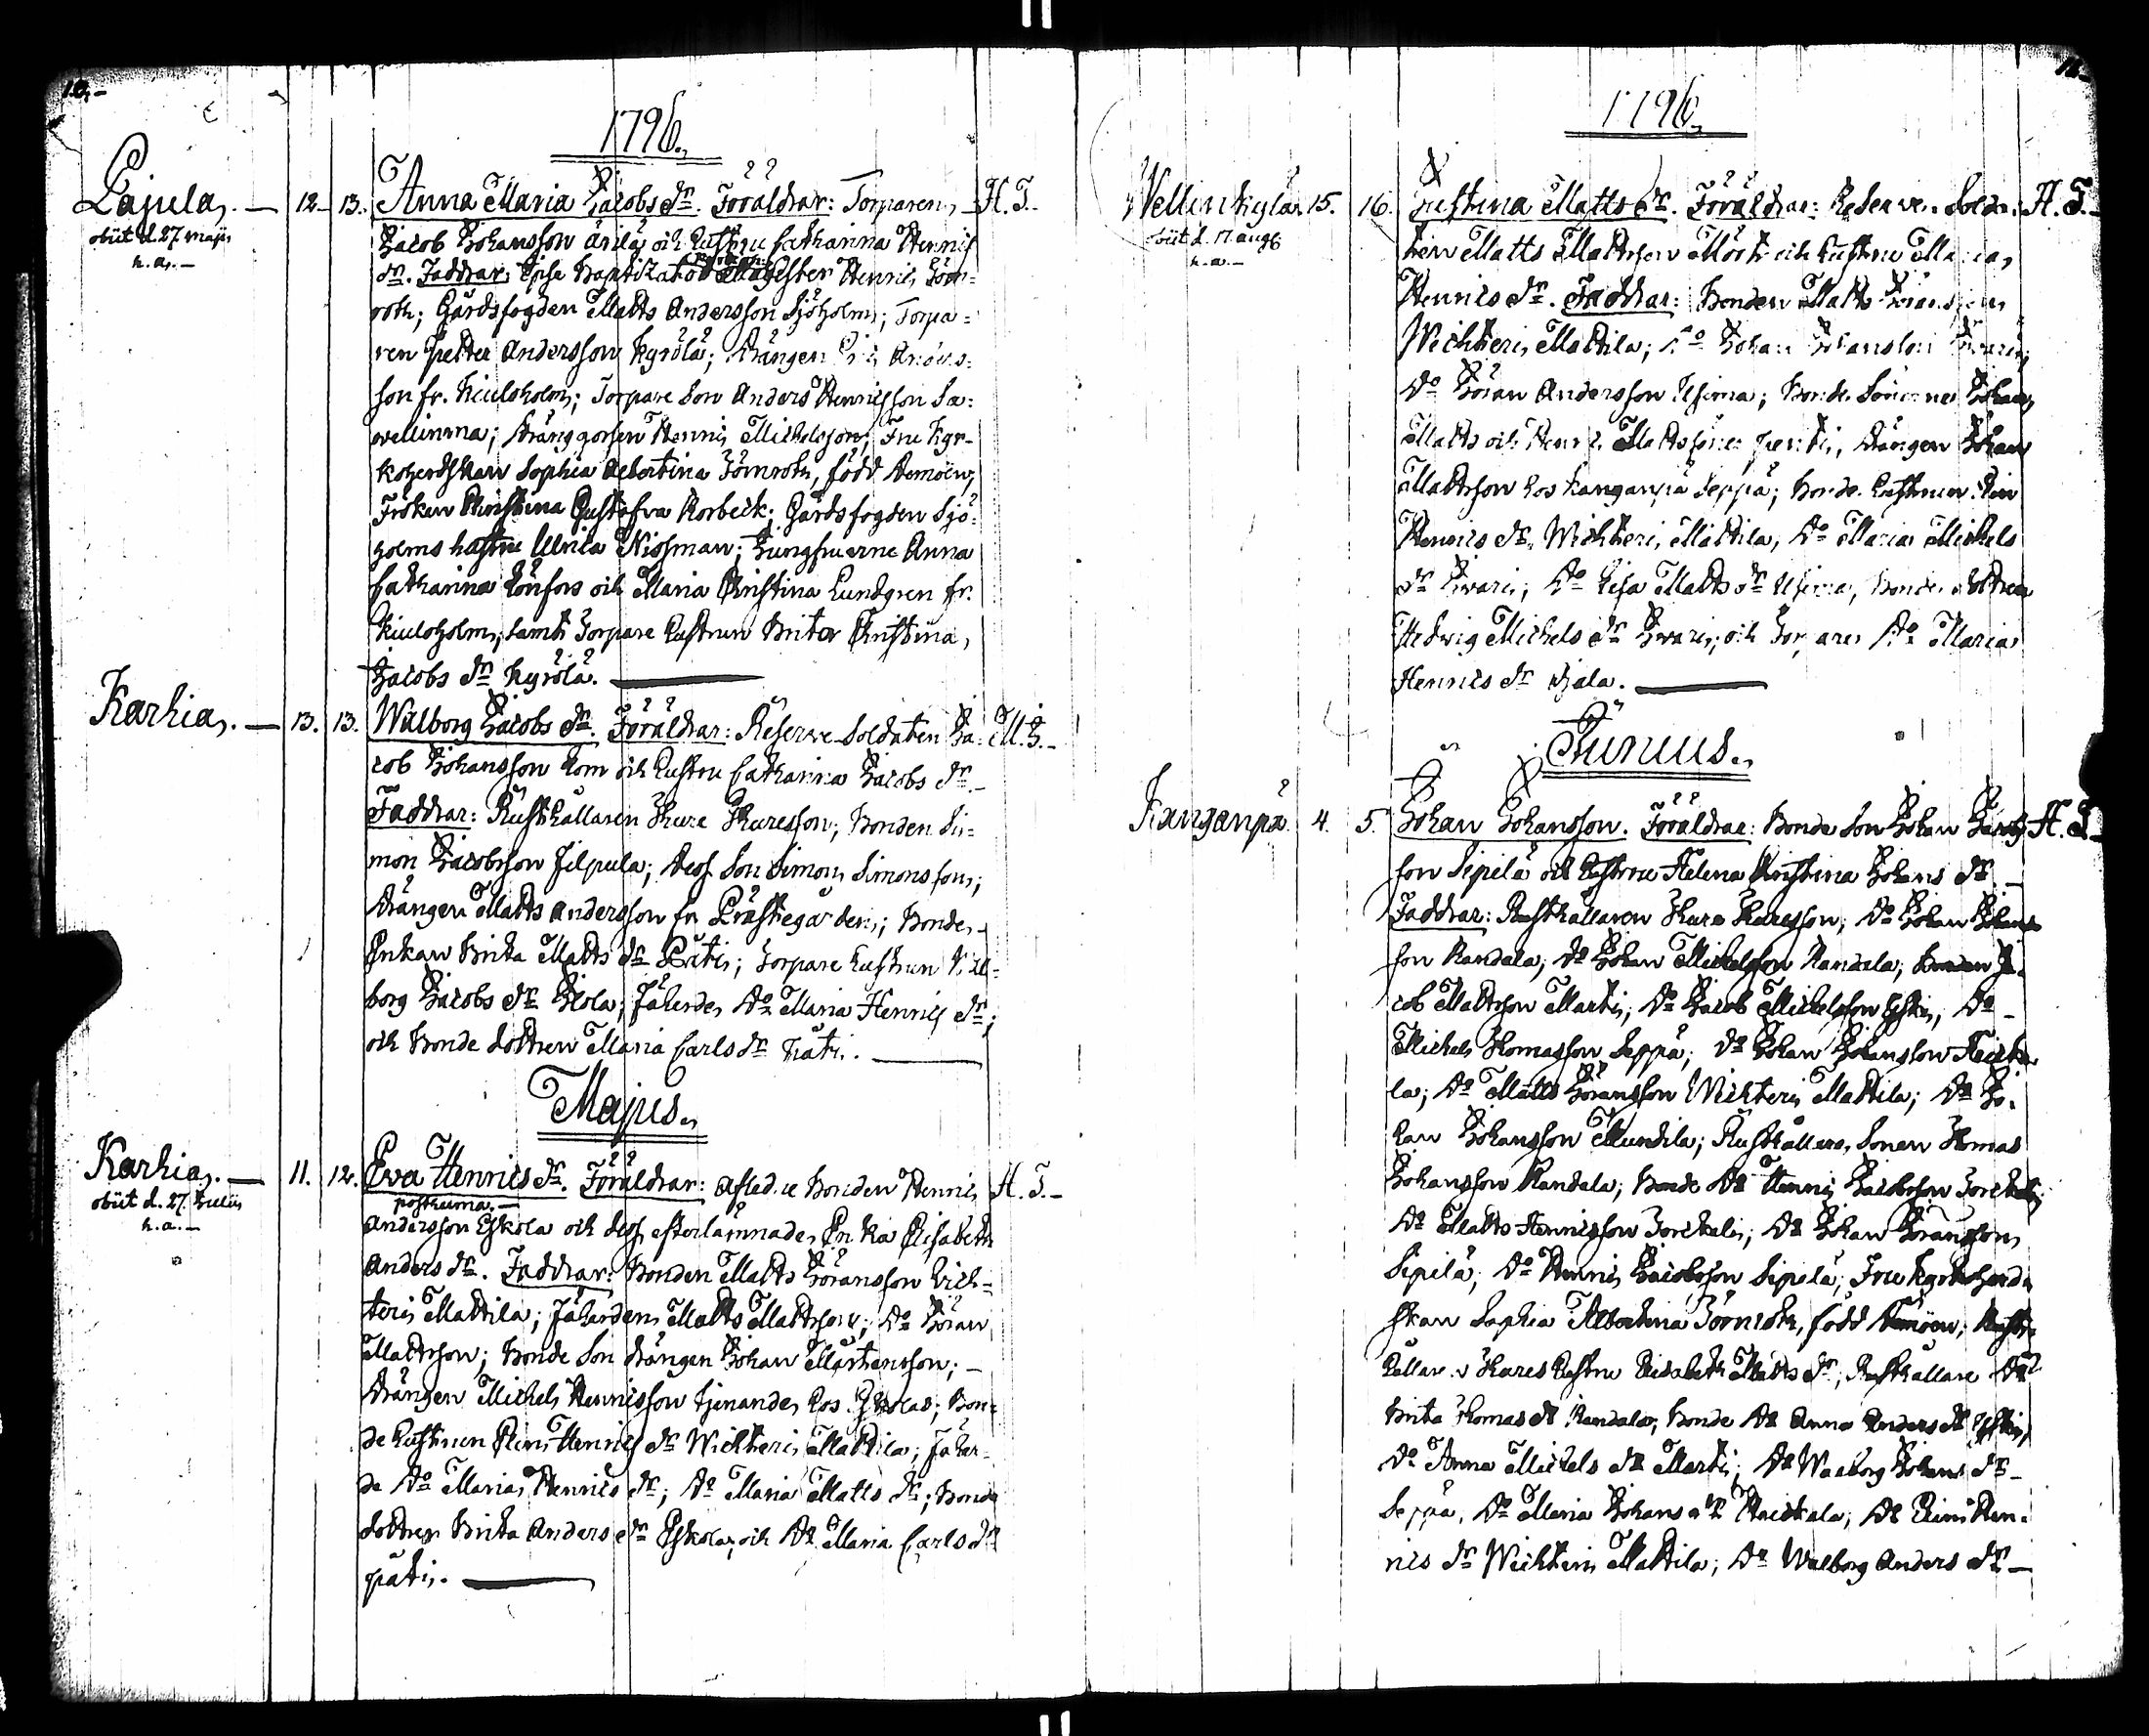 10.
1796.
Lajula.
obiit d. 27 maji
h. a.
12. 13. Anna Maria Jacobs dr. Föräldrar: Torparen H. T.
Jacob Johansson och hustru Catharina Henrics
dr. Faddrar: Ipse Baptizator Magister Henric
roth; Gårdsfogden Matts Andersson Sjöholm; Torpa=
ren Petter Andersson Kyrölä; Drängen Anders=
son fr. Kiuloholm; Torpare Son Anders Henricsson Sa=
vellinma; Dränggossen Henric Michelsson; Fru Kyr-
koherdskan Sophia Albertina Törnroth, född Armoen;
Fröken Christina Gustafva Rorbeck; Gårdsfogden Sjö=
holms hustru Ulrica Nissman; Jungfruerne Anna
Catharina Lönfors och Maria Christina Lundgren fr.
Kiuloholm, samt Torpare hustrun Brita Christina
Jacobs dr Kyrölä.
Karhia. 13. 13. Walborg Jacobs dr. Föräldrar: Reserve Soldaten Ja= M. J.
cob Johansson Rom och hustru Catharina Jacobs dr.
Faddrar: Rusthållaren Thure Thuresson; Bonden Si=
mon Jacobsson Filpula; Dess Son Simon Simonsson;
Drängen Matts Andersson fr Prästegården; Bonde
Enkan Brita Matts dr Pätis; Torpare hustrun Wal=
borg Jacobs dr; Do Maria Henrics dr;
och Bonde dottren Maria Carls dr Pati.
Majus.
Karhia. 11. 12. Eva Henrics dr. Föräldrar: aflidne Bonden Henric H. T.
obiit d. 27. Julii
h. a.
posthuma.
Andersson Eskola och dess efterlämnade Enka Elisabeth
Anders dr. Faddrar: Bonden Matts Göransson Wich=
teri Mattila; Matts Mattsson; Do Göran
Mattsson; Bonde Son Drängen Johan Mårtensson;
Drängen Michel Henricsson tjenande hos Eskolas; Bon=
de hustrun Elin Henrics dr Wichteri Mattila;
de Do Maria Henrics dr; Do Maria Matts dr; Bonde
dottren Brita Anders dr Eskola, och Do Maria Carls dr
pätis.
1796.
Wellinkylä 15. 16. Christina Matts dr. Föräldrar: Reserve Solda= H. T.
obiit d. 17 aug
h. a.
ten Matts Mattsson Mört och hustru Maria
Henrics dr. Faddrar: Bonden Matts Göransson
Wichteri Mattila; Do Johan Johansson
Do Göran Andersson Usima; Bonde Sönerne Johan
Matts och Henric Mattsöner Drängen Johan
Mattsson hos Kanganpä Seppä; Bonde hustrun Elin
Henrics dr, Wichteri Mattila, Do Maria Michels
dr Do Lisa Matts dr Usima, Bonde dottren
Hedvig Michels dr och Torpare Do Maria
Henrics dr
Junius.
Kanganpä. 4. 5. Johan Johansson. Föräldrar: Bonde Son Johan H. T.
son Sipilä och hustru Helena Christina Johans dr
Faddrar: Rusthållaren Thure Thuresson; Do Johan Johans
son Randala; Do Johan Michelsson Randala; Bonden Ja=
cob Mattsson Martis; Do Jacob Michelsson Eskis; Do
Michel Thomasson Seppä; Do Johan Johansson
la; Do Matts Göransson Wichteri Mattila; Do Jo=
han Johansson Mundila; Rusthållare Sonen Thomas
Johansson Randala; Bonde Do Henric Jacobsson
Do Matts Henricsson Do Johan Göransson
Sipilä; Do Henric Jacobsson Sipilä; Fru Kyrkoherd
skan Sophia Albertina Törnroth, född Armoen; Rust=
hållare Thures hustru Elisabeth Matts dr; Rusthållare Do
Brita Thomas dr Randala; Bonde Do Anna Anders dr Eskis,
Do Anna Michels dr Martis; Do Walborg Johans dr
Seppä, Do Maria Johans dr Do Elin Hen=
rics dr Wichteri Mattila; Do Walborg Anders dr